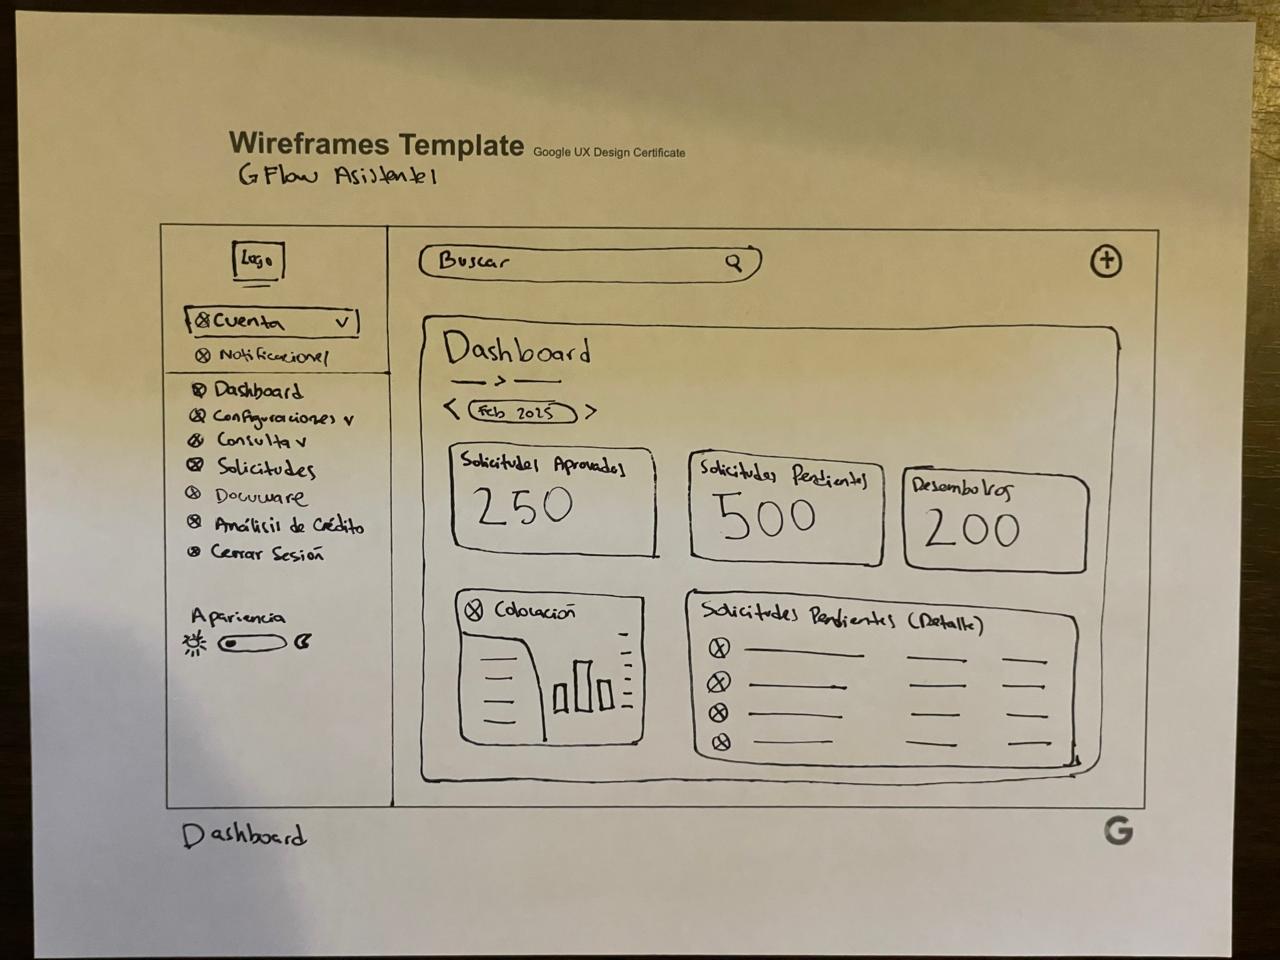 Wireframes Template Google UX Design Certificate
GFlow Asistentes
Logo
Cuenta
Notificaciones
Dashboard
Configuraciones
Consulta
Solicitudes
Docuware
Análisis de Crédito
Cerrar Sesión
Apariencia
Buscar
Dashboard
Feb 2025
Solicitudes Aprovados
250
Solicitudes Pendientes
500
Desembolsos
200
Colocación
Solicitudes Pendientes (Detalle)
Dashboard
G